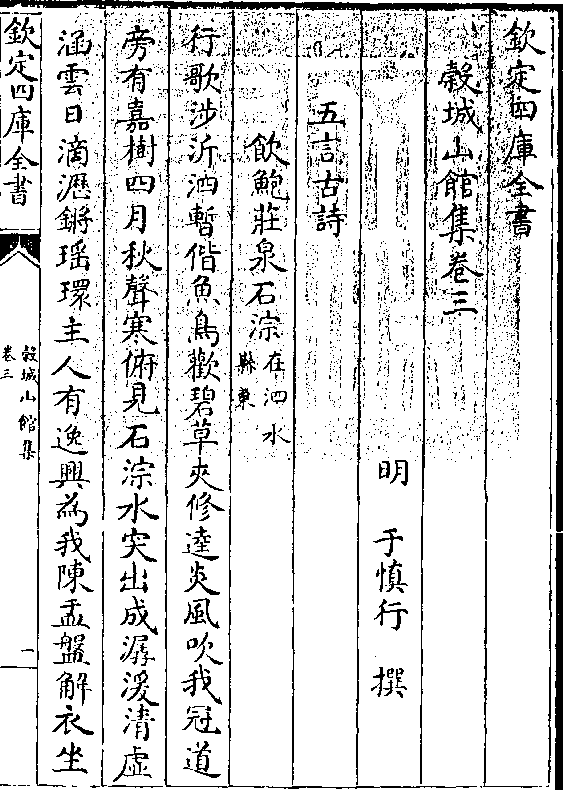 欽定四庫全書
榖城山館集卷三
明 于慎行 撰
五言古詩
飲鮑莊泉石淙在泗水縣東
行歌涉沂泗暫偕魚鳥歡碧草夾修逵炎風吹我冠道
旁有嘉樹四月秋聲寒俯見石淙水突出成潺湲清虛
涵雲日滴瀝鏘瑶環主人有逸興為我陳盂盤解衣坐
欽定四庫全書
榖城山館集
卷三
一